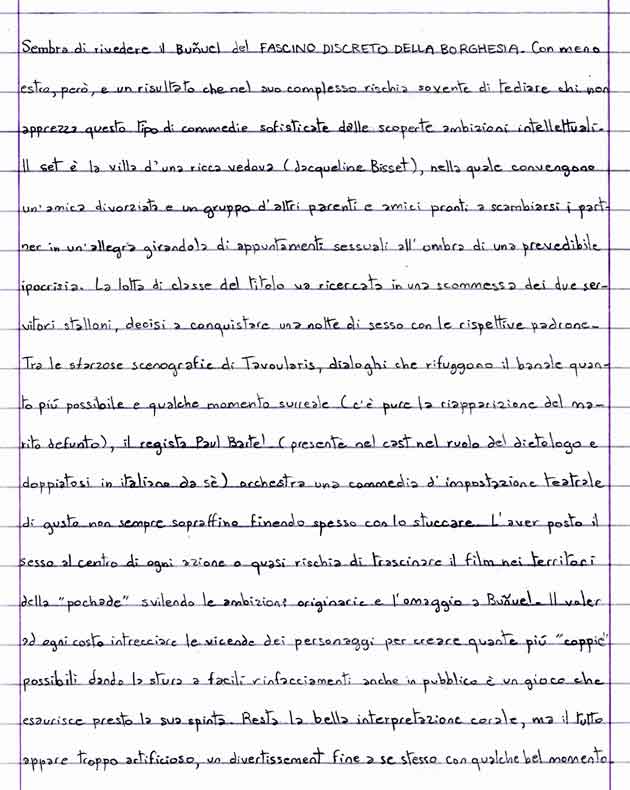 Sembra di rivedere il Buñuel del FASCINO DISCRETO DELLA BORGHESIA. Con meno
estro, però, e un risultato che nel suo complesso rischia sovente di tediare chi non
apprezza questo tipo di commedie sofisticate dalle scoperte ambizioni intellettuali.
Il set è la villa d'una ricca vedova (Jacqueline Bisset), nella quale convengono
un'amica divorziata e un gruppo d'altri parenti e amici pronti a scambiarsi i part-
ner in un'allegra girandola di appuntamenti sessuali all'ombra di una prevedibile
ipocrisia. La lotta di classe del titolo va ricercata in una scommessa dei due ser-
vitori stalloni, decisi a conquistare una notte di sesso con le rispettive padrone.
Tra le sfarzose scenografie di Tavoularis, dialoghi che rifuggono il banale quan-
to piú possibile e qualche momento surreale (c'è pure la riapparizione del ma-
rito defunto), il regista Paul Bartel (presente nel cast nel ruolo del dietologo e
doppiatosi in italiano da sè) orchestra una commedia d'impostazione teatrale
di gusto non sempre sopraffino finendo spesso con lo stuccare. L'aver posto il
sesso al centro di ogni azione o quasi rischia di trascinare il film nei territori
della "pochade" svilendo le ambizioni originarie e l'omaggio a Buñuel. Il voler
ad ogni costo intrecciare le vicende dei personaggi per creare quante piú "coppie"
possibili dando la stura a facili rinfacciamenti anche in pubblico è un gioco che
esaurisce presto la sua spinta. Resta la bella interpretazione corale, ma il tutto
appare troppo artificioso, un divertissement fine a se stesso con qualche bel momento.